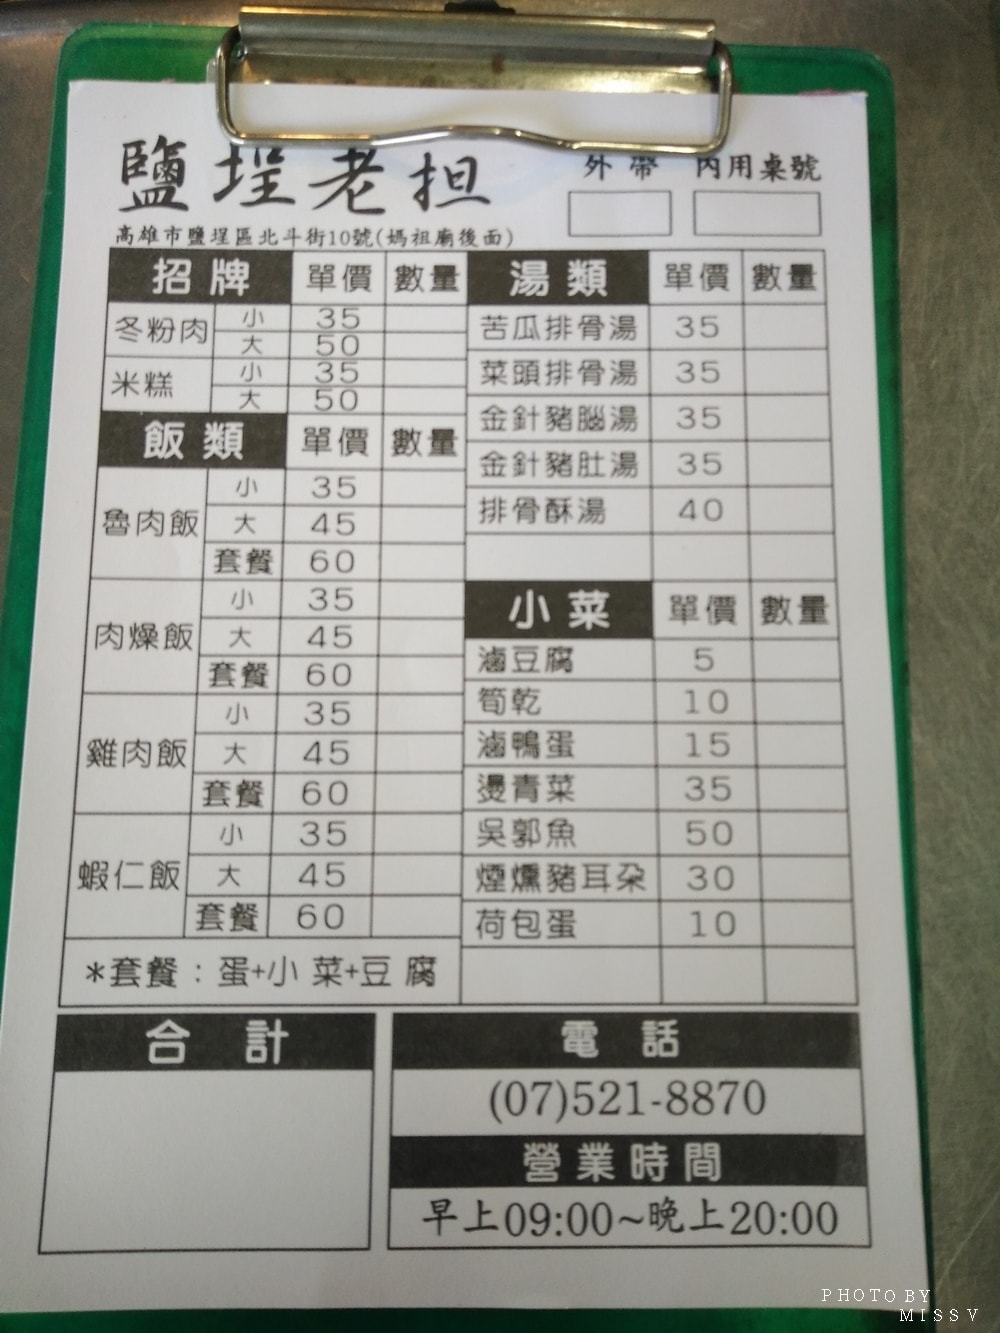 鹽埕老担
外帶 內用桌號
高雄市鹽埕區北斗街10號(媽祖廟後面)
招牌 單價 數量
冬粉肉 小 35
大 50
米糕 小 35
大 50
飯類 單價 數量
魯肉飯 小 35
大 45
套餐 60
肉燥飯 小 35
大 45
套餐 60
雞肉飯 小 35
大 45
套餐 60
蝦仁飯 小 35
大 45
套餐 60
*套餐：蛋+小菜+豆腐
湯類 單價 數量
苦瓜排骨湯 35
菜頭排骨湯 35
金針豬腦湯 35
金針豬肚湯 35
排骨酥湯 40
小菜 單價 數量
滷豆腐 5
筍乾 10
滷鴨蛋 15
燙青菜 35
吳郭魚 50
煙燻豬耳朵 30
荷包蛋 10
合計
電話
(07)521-8870
營業時間
早上09:00~晚上20:00
PHOTO BY
MISS V